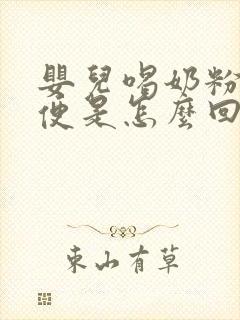 嬰兒喝奶粉
便是怎麼回
東山有草